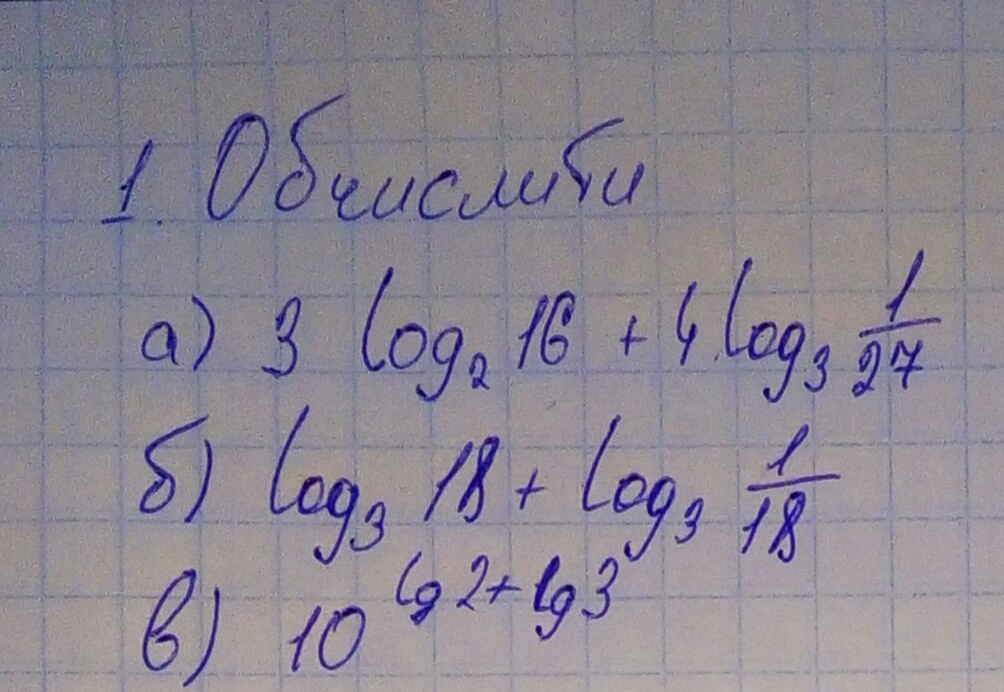 1. Обчислити
а) 3 log₂ 16 + 4 log₃ 1/27
б) log₃ 18 + log₃ 1/18
в) 10^(lg 2 + lg 3)